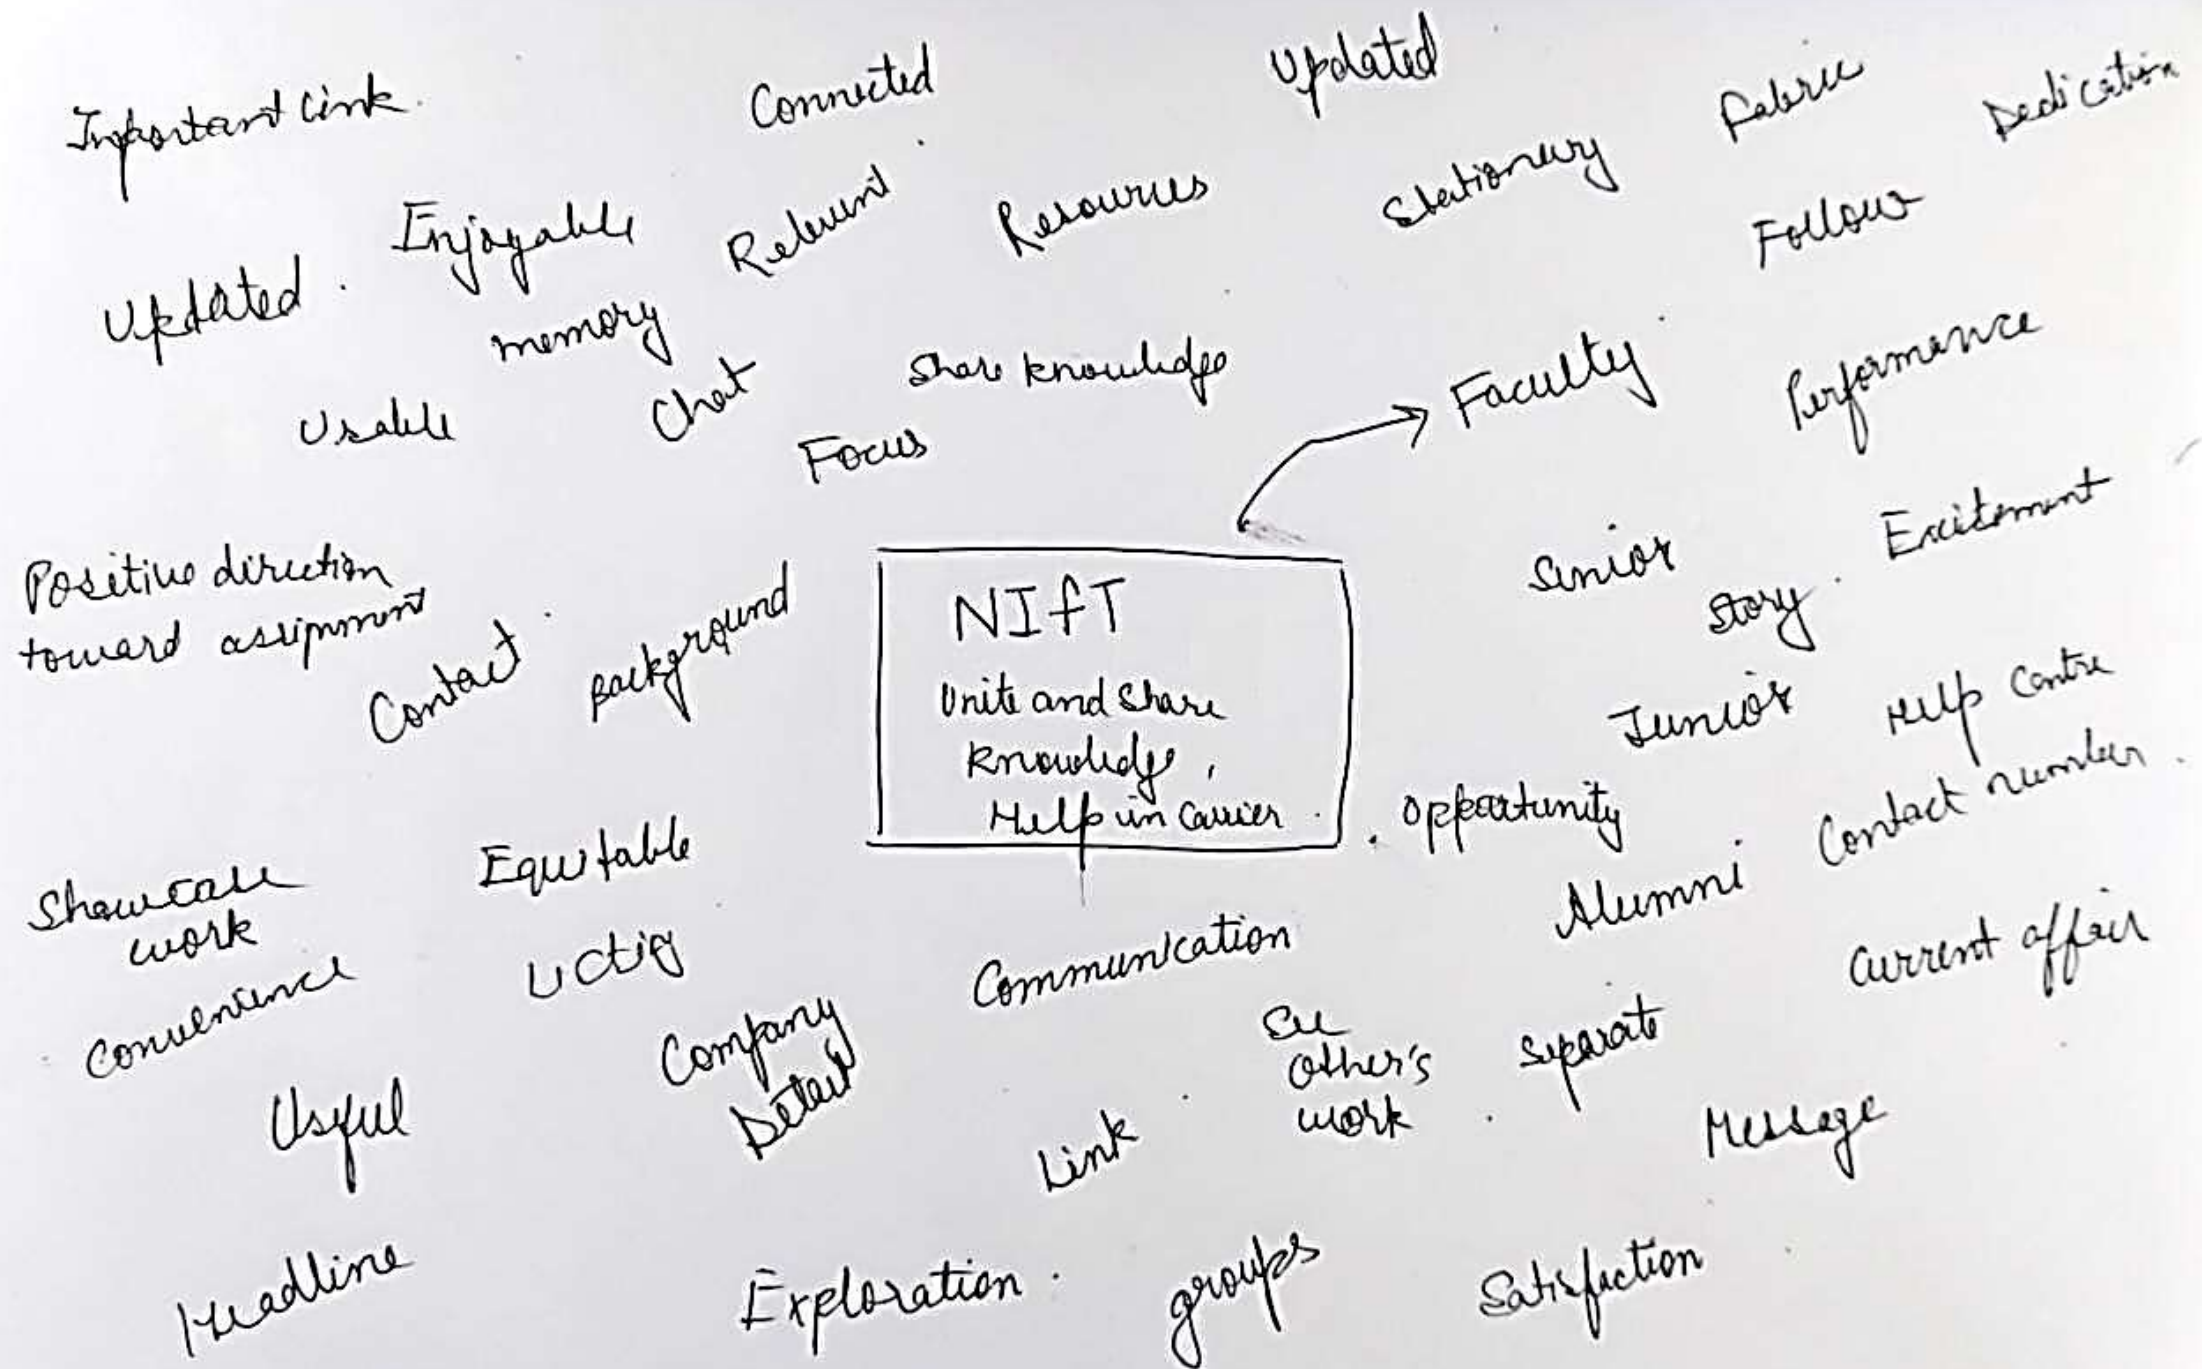 Important Link
Connected
Updated
Fabric
Dedication
Enjoyable
Relevant
Resources
Stationary
Follow
Updated
memory
Chat
Share knowledge
Faculty
Performance
Usable
Focus
Positive direction
toward assignment
Contact
Background
NIfT
Unite and Share
Knowledge,
Help in Carrier
Senior
Story
Excitement
Junior
Help Centre
Opportunity
Contact number
Alumni
Showcase
work
Equitable
Convenience
Communication
Current affair
Company
Detail
See
other's
work
Separate
Useful
Link
Message
Headline
Exploration
groups
Satisfaction